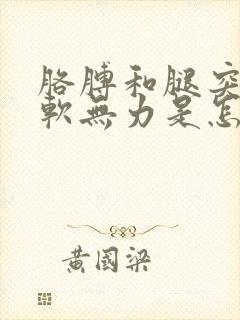 胳膊和腿突
軟無力是怎
黃國梁